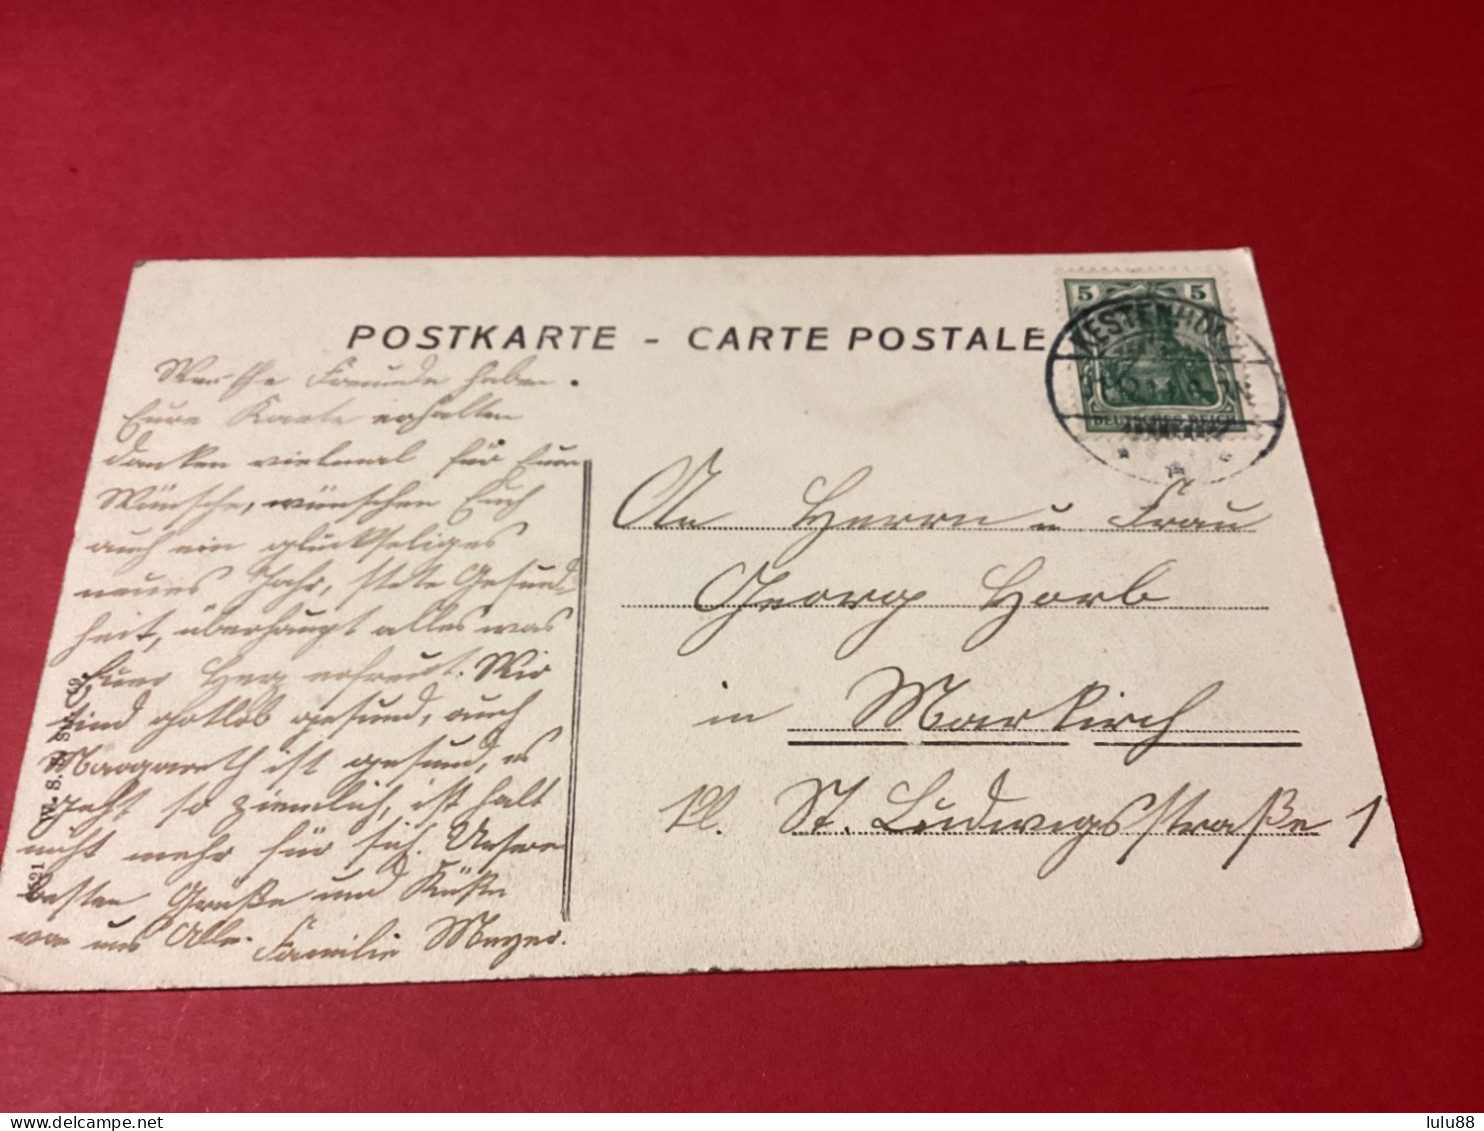 POSTKARTE - CARTE POSTALE
5 5
KESTENHOL
DEUTSCHES REICH
Werthe Freunde haben
Eure Karte erhalten
danken vielmal für Eure
Wünsche, wünschen Euch
auch ein glückseliges
neues Jahr, stete Gesund-
heit, überhaupt alles was
Euer Herz erfreut. Wir
sind gottlob gesund, auch
Margareth ist gesund, es
geht so ziemlich, ist halt
nicht mehr für sich. Unsere
besten Grüße und Küsse
von uns Alle. Familie Meyer.
An Herrn u Frau
Georg Horb
in Markirch
kl. St. Ludwigsstraße 1
W. S. S.
lulu88